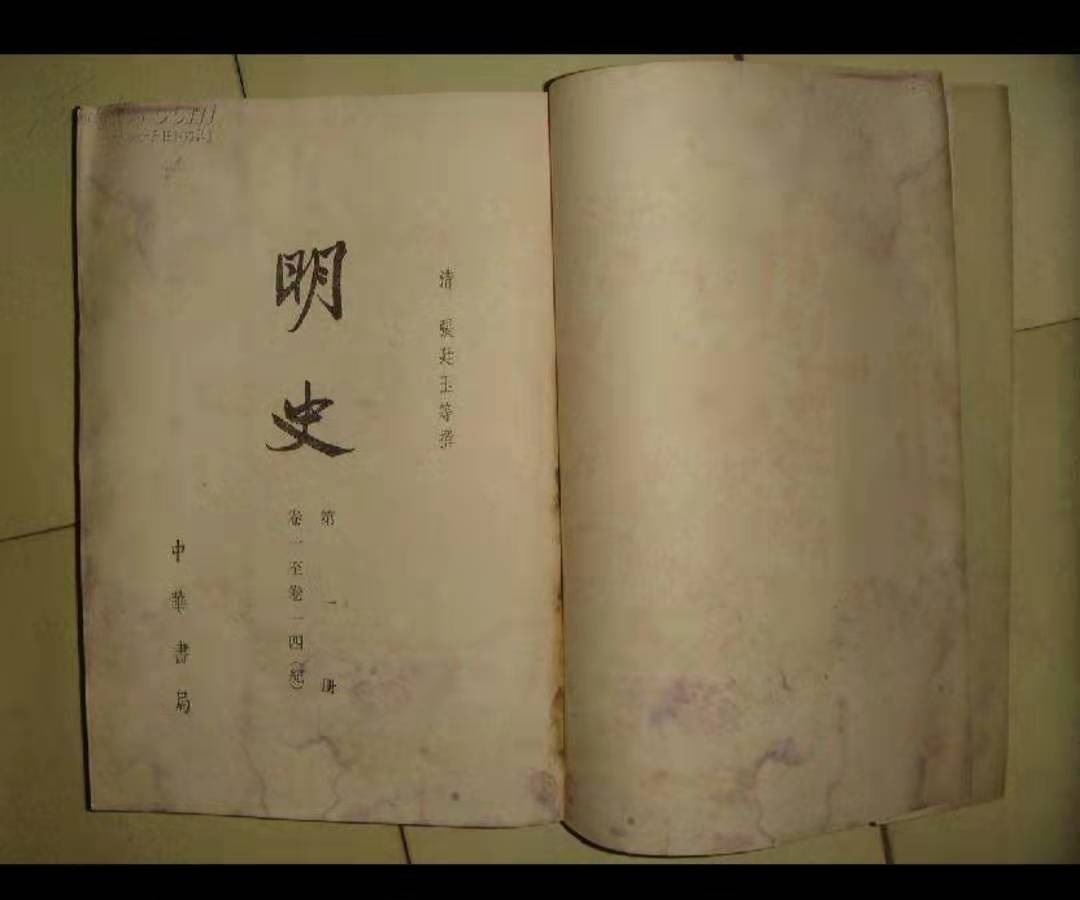 清 張廷玉等撰
明史
第一册
卷一至卷一四(紀)
中華書局